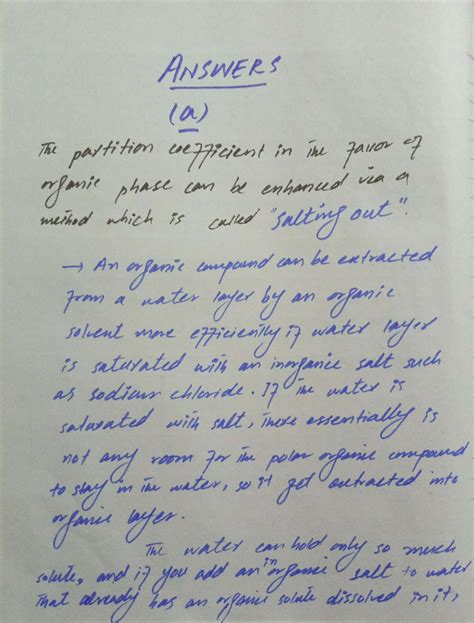 ANSWERS
(a)
The partition coefficient in the favor of
organic phase can be enhanced via a
method which is called "salting out".
→ An organic compound can be extracted
from a water layer by an organic
solvent more efficiently if water layer
is saturated with an inorganic salt such
as sodium chloride. If the water is
saturated with salt, there essentially is
not any room for the polar organic compound
to stay in the water, so it get extracted into
organic layer.
The water can hold only so much
solute, and if you add an inorganic salt to water
that already has an organic solute dissolved in it,